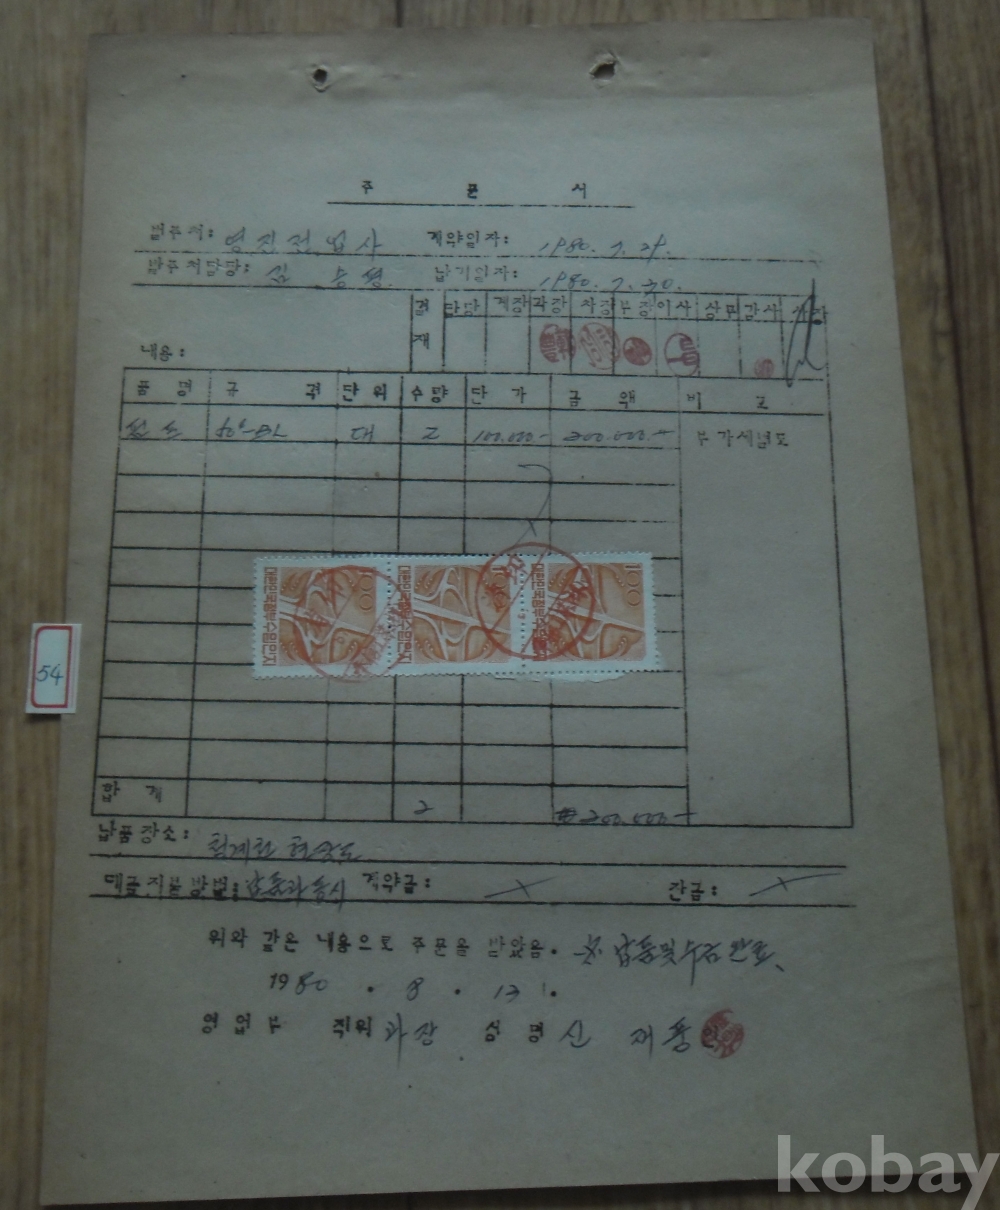 주 문 서
발주처: 영진전업사 계약일자: 1980. 7. 29.
발주처담당: 김 승평 납기일자: 1980. 7. 30.
결재 담당 계장 과장 차장 부장 이사 상무 감사 사장
내용:
품 명 규 격 단위 수량 단 가 금 액 비 고
대 2 100.000- 200.000.- 부가세별도
100 100 100
대한민국정부수입인지 대한민국정부수입인지 대한민국정부수입인지
54
합 계 2 ₩200.000-
납품장소: 청계천
대금지불방법: 납품과 동시 계약금: 잔금:
위와 같은 내용으로 주문을 받았음. 납품및수금완료
1980. 8. 13.
영업부 직위 과장 성명 신 재풍
kobay